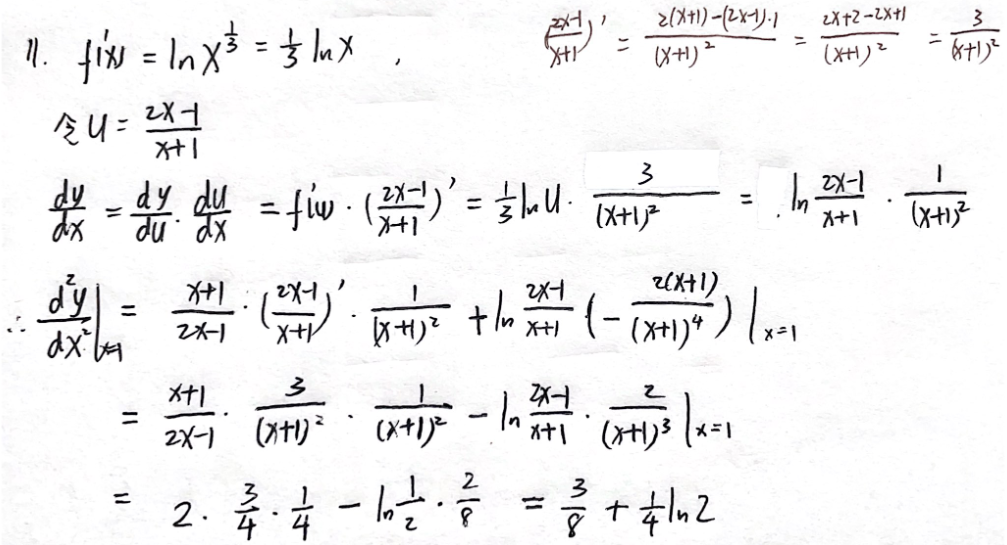 11. f'(x) = ln x^{1/3} = 1/3 ln x ,
((2x-1)/(x+1))' = (2(x+1)-(2x-1)·1)/(x+1)^2 = (2x+2-2x+1)/(x+1)^2 = 3/(x+1)^2
令 u = (2x-1)/(x+1)
dy/dx = dy/du · du/dx = f'(u) · ((2x-1)/(x+1))' = 1/3 ln u · 3/(x+1)^2 = ln (2x-1)/(x+1) · 1/(x+1)^2
∴ d^2y/dx^2 |_{x=1} = (x+1)/(2x-1) · ((2x-1)/(x+1))' · 1/(x+1)^2 + ln (2x-1)/(x+1) (- 2(x+1)/(x+1)^4) |_{x=1}
= (x+1)/(2x-1) · 3/(x+1)^2 · 1/(x+1)^2 - ln (2x-1)/(x+1) · 2/(x+1)^3 |_{x=1}
= 2 · 3/4 · 1/4 - ln 1/2 · 2/8 = 3/8 + 1/4 ln 2